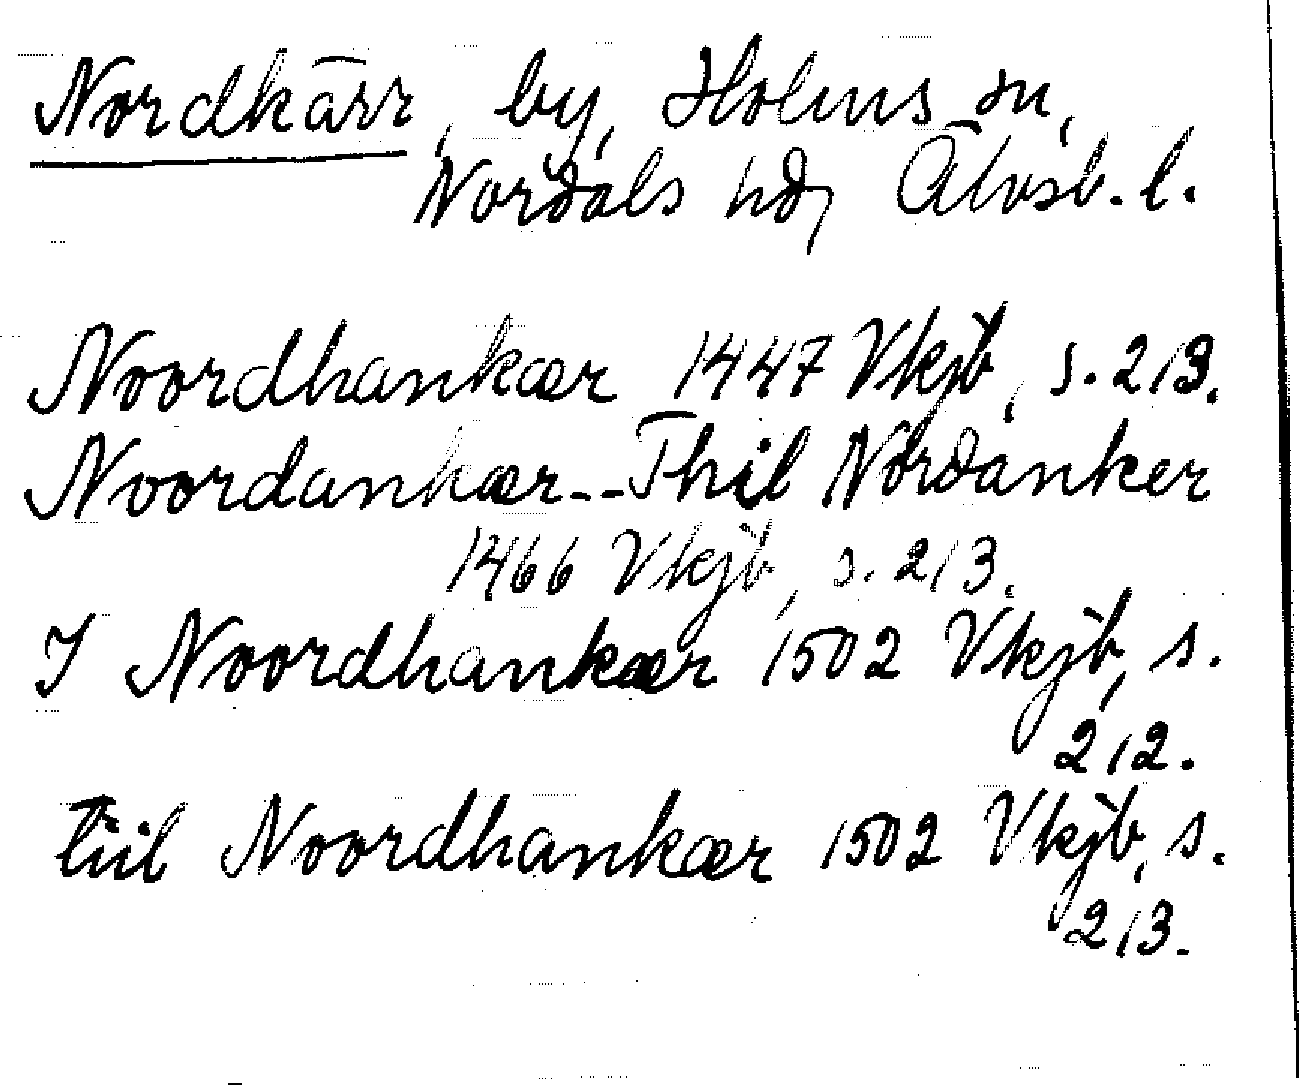 Nordkärr, by, Holms sn,
Nordals hd, Älvsb. l.
Noordhankær 1447 Vkjb, s. 213.
Noordankær -- Thil Nordanker
1466 Vkjb, s. 213.
I Noordhankær 1502 Vkjb, s.
212.
tiil Noordhankær 1502 Vkjb, s.
213.